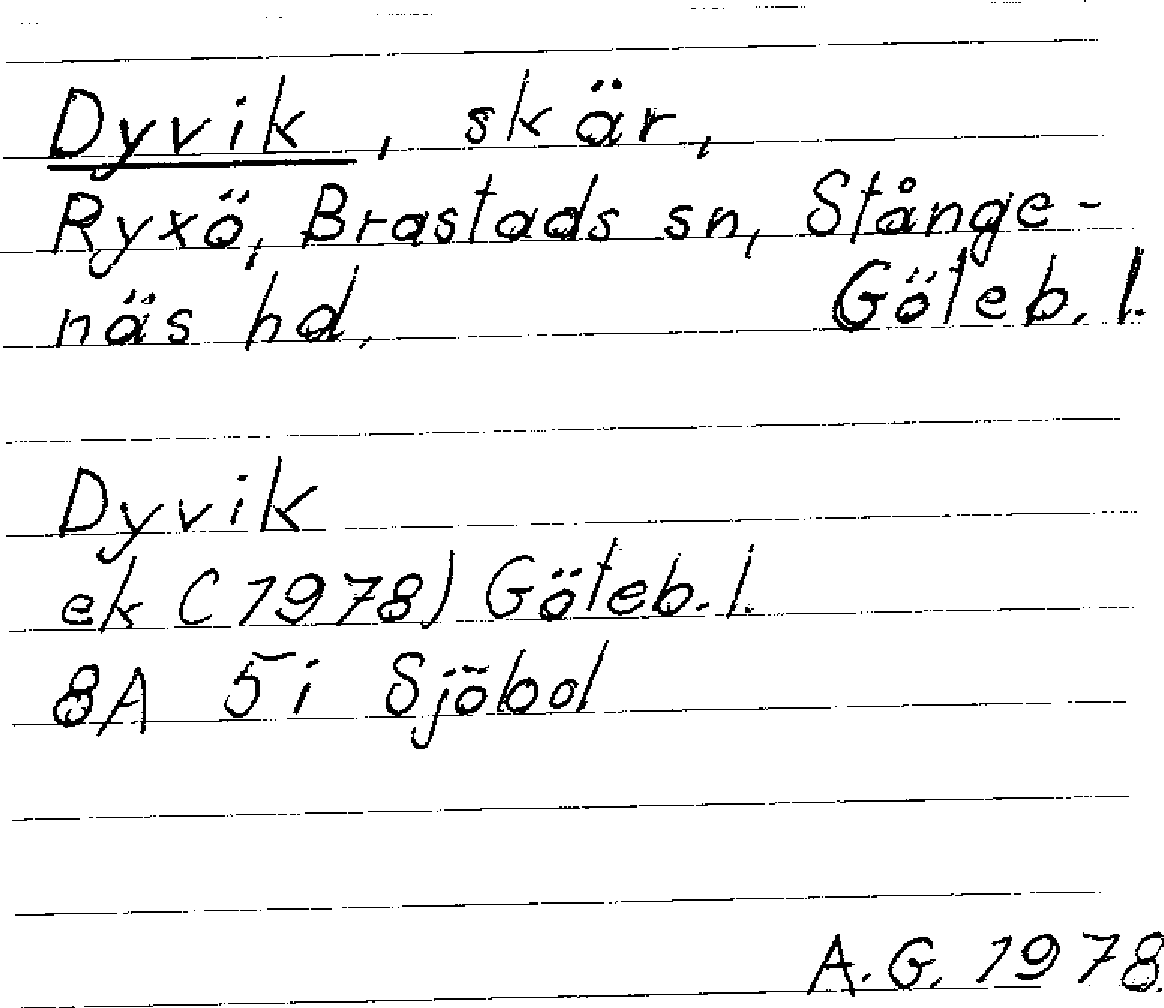 Dyvik, skär,
Ryxö, Brastads sn, Stånge-
näs hd. Göteb. l.
Dyvik
ek (1978) Göteb. l.
8A 5i Sjöbol
A.G. 1978.